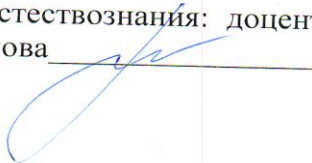 стествознания: доцент
ова